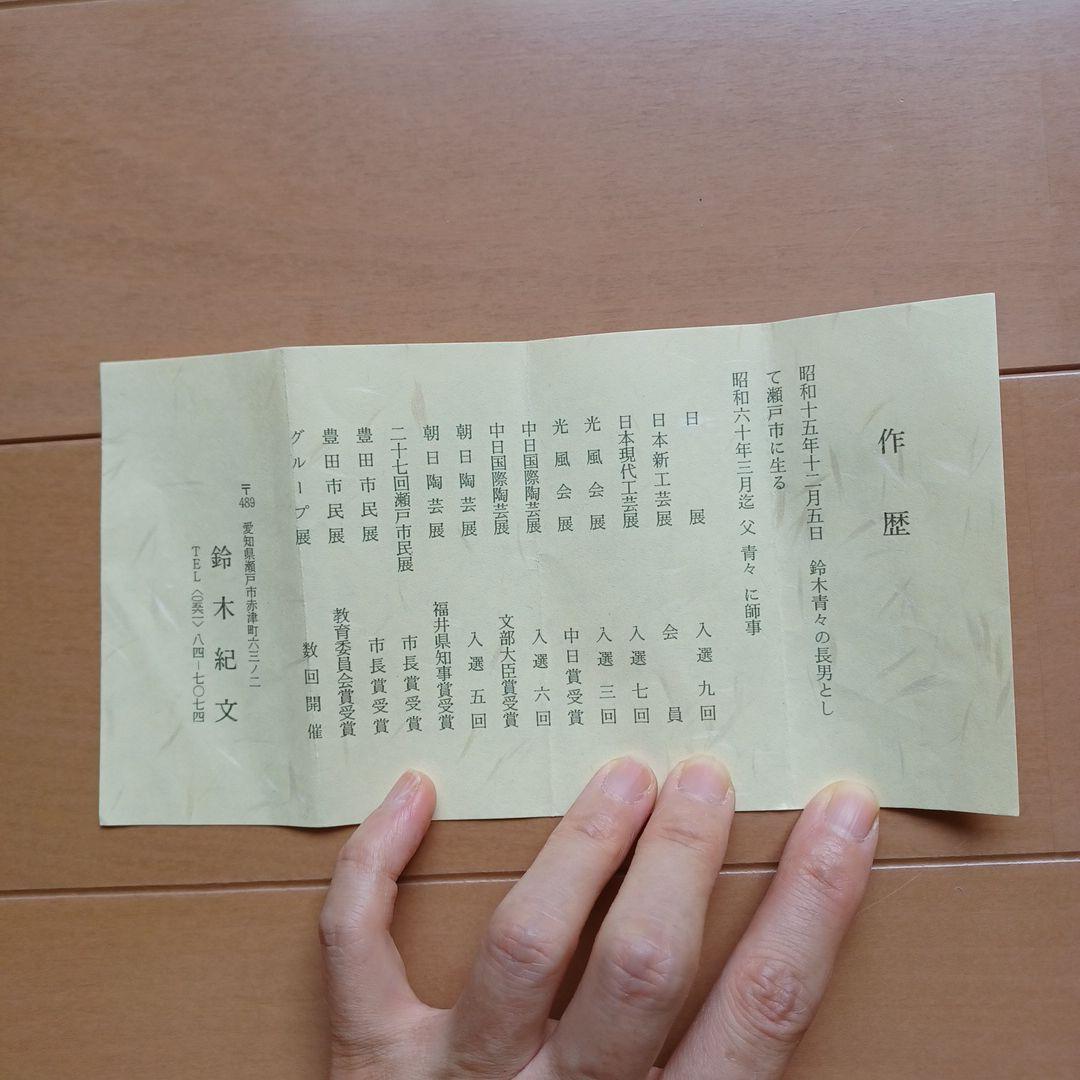 作歴
昭和十五年十二月五日 鈴木青々の長男とし
て瀬戸市に生る
昭和六十年三月迄 父 青々 に師事
日展 入選九回
日本新工芸展 会員
日本現代工芸展 入選七回
光風会展 入選三回
光風会展 中日賞受賞
中日国際陶芸展 入選六回
中日国際陶芸展 文部大臣賞受賞
朝日陶芸展 入選五回
朝日陶芸展 福井県知事賞受賞
二十七回瀬戸市民展 市長賞受賞
豊田市民展 市長賞受賞
豊田市民展 教育委員会賞受賞
グループ展 数回開催
〒489 愛知県瀬戸市赤津町六三ノ二
鈴木紀文
TEL〈〇五六一〉八四－七〇七四